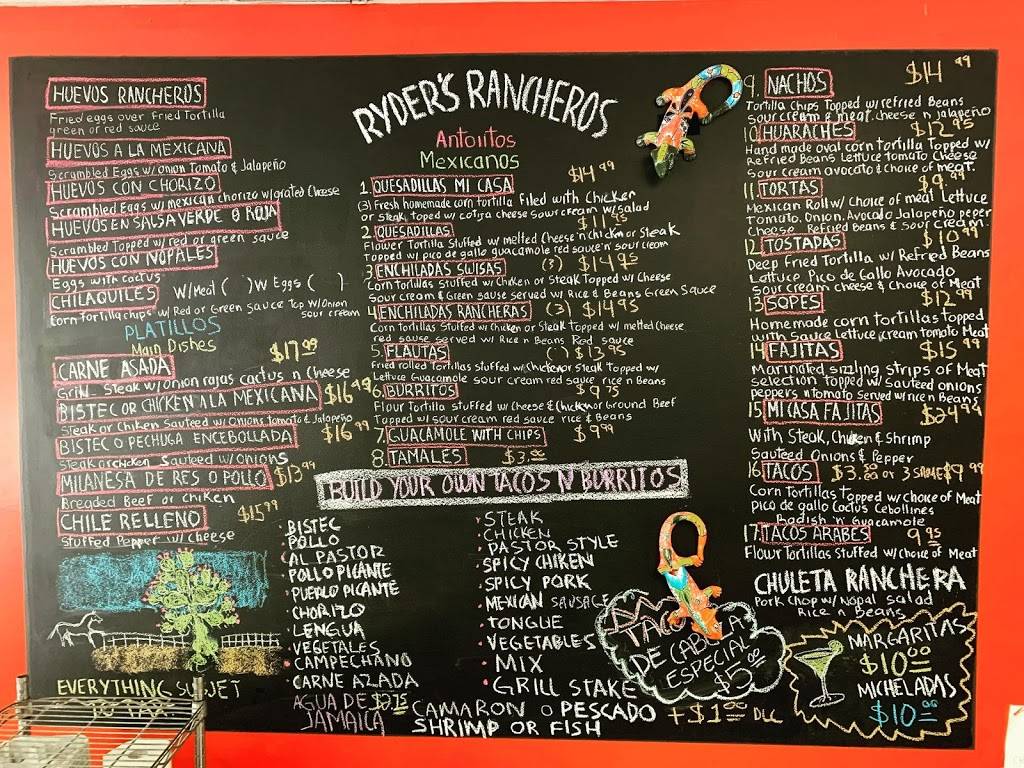 HUEVOS RANCHEROS
Fried eggs over Fried Tortilla
green or red sauce
HUEVOS A LA MEXICANA
Scrumbled Eggs w/ onion Tomato & Jalapeño
HUEVOS CON CHORIZO
Scrambled Eggs w/ mexican chorizo w/ grated Cheese
HUEVOS EN SALSA VERDE O ROJA
Scrambled Topped w/ red or green sauce
HUEVO CON NOPALES
Eggs with cactus
CHILAQUILES W/Meat ( ) W Eggs ( )
Corn tortilla chips w/ Red or Green sauce Top w/onion
sour cream
PLATILLOS
Main Dishes
CARNE ASADA $17.99
Grill Steak w/onion rajas cactus n cheese
BISTEC OR CHICKEN A LA MEXICANA $16.49
Steak or Chiken Sauteed w/ Onions, tomato & Jalapeño
BISTEC O PECHUGA ENCEBOLLADA $16.99
Steak or chicken Sauteed w/ Onions
MILANESA DE RES O POLLO $13.99
Breaded Beef or chiken
CHILE RELLENO $15.99
Stuffed Pepper w/ Cheese
EVERYTHING SUBJET
TO TAX
RYDER'S RANCHEROS
Antojitos
Mexicanos
1. QUESADILLAS MI CASA $14.99
(3) Fresh homemade corn tortilla Filled with Chicken
or Steak, toped w/ cotija cheese sour cream w/ salad
2. QUESADILLAS $11.95
Flower Tortilla Stuffed w/ melted Cheese 'n' chicken or Steak
Topped w/ pico de gallo guacamole red sauce 'n' sour cream
3. ENCHILADAS SWISAS (3) $14.95
Corn tortillas Stuffed w/ Chicken or Steak Topped w/ Cheese
Sour cream & Green sause served w/ Rice & Beans Green Sauce
4. ENCHILADAS RANCHERAS (3) $14.95
Corn tortillas Stuffed w/ chicken or Steak Topped w/ melted cheese
red sause served w/ Rice n Beans Red sauce
5. FLAUTAS ( ) $13.95
Fried rolled Tortillas stuffed w/ Chicken or Steak Topped w/
Lettuce Guacamole sour cream red sauce rice n Beans
6. BURRITOS $9.95
Flour Tortilla stuffed w/ Cheese & Chicken or Ground Beef
Topped w/ sour cream red sauce rice & Beans
7. GUACAMOLE WITH CHIPS $9.99
8. TAMALES $3.00
BUILD YOUR OWN TACOS N' BURRITOS
BISTEC
POLLO
AL PASTOR
POLLO PICANTE
PUERLO PICANTE
CHORIZO
LENGUA
VEGETALES
CAMPECHANO
CARNE AZADA
STEAK
CHICKEN
PASTOR STYLE
SPICY CHIKEN
SPICY PORK
MEXICAN SAUSAGE
TONGUE
VEGETABLES
MIX
GRILL STAKE
AGUA DE $2.75
JAMAICA
CAMARON O PESCADO +$1.00 DLL
SHRIMP OR FISH
9. NACHOS $14.49
Tortilla Chips Topped w/ refried Beans
sour cream & meat, cheese n jalapeño
10. HUARACHES $12.95
Hand made oval corn tortilla Topped w/
Refried Beans Lettuce tomato Cheese
Sour cream avocato & choice of meat.
11. TORTAS $9.99
Mexican Roll w/ choice of meat Lettuce
Tomato, Onion, Avocado Jalapeño peper
Cheese Refried Beans & Sour Cream
12. TOSTADAS $10.99
Deep Fried Tortilla w/ Refried Beans
Lettuce Pico de Gallo Avocado
sour cream cheese & Choice of Meat
13. SOPES $12.99
Homemade corn tortillas topped
with Sauce Lettuce, cream tomato Meat
14. FAJITAS $15.99
Marinated sizzling strips of Meat
selection topped w/ Sauteed onions
peppers n tomato served w/ rice n Beans
15. MI CASA FAJITAS $24.99
With Steak, Chicken & Shrimp
Sauteed Onions & Pepper
16. TACOS $3.50 or 3 SAME $9.99
Corn Tortillas topped w/ choice of Meat
Pico de gallo Cactus Cebollines
Radish 'n' Guacamole
17. TACOS ARABES 9.95
Flour Tortillas Stuffed w/ choice of Meat
CHULETA RANCHERA
Pork Chop w/ Nopal salad
Rice n Beans
TACO
DE CABEZA
ESPECIAL
$5.00
MARGARITAS
$10.00
MICHELADAS
$10.00